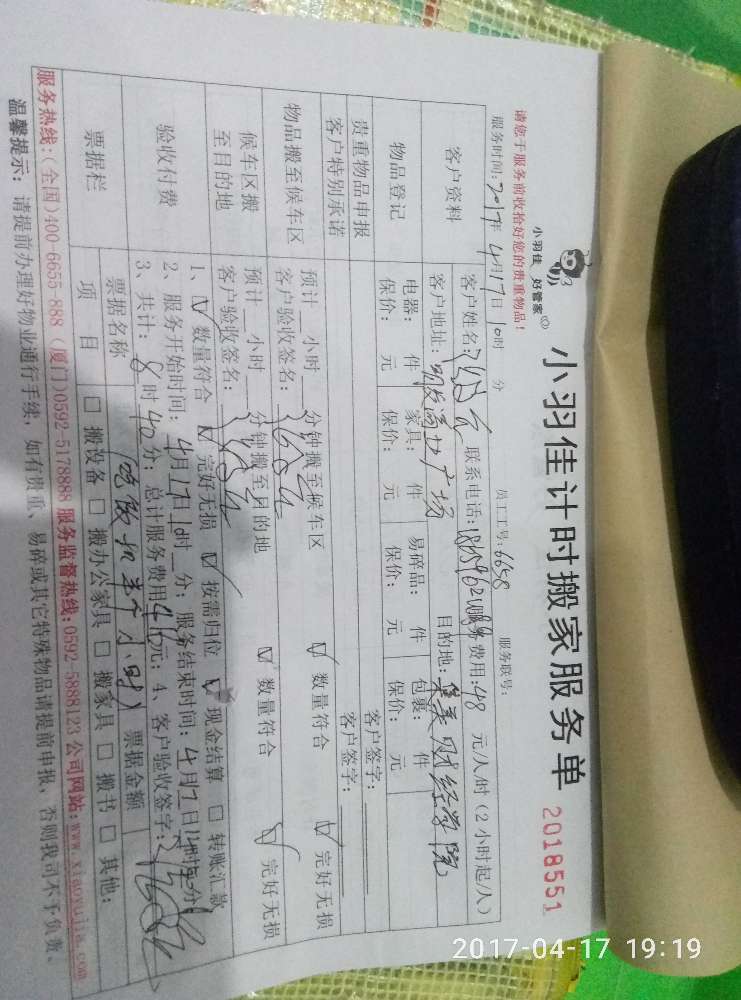 小羽佳 好管家
小羽佳计时搬家服务单 2018551
请您于服务前收拾好您的贵重物品!
服务时间: 2017年 4月17日 10时 分 员工工号: 6658 服务联号:
客户资料
客户姓名: 联系电话: 服务费用: 48 元/人/时 (2小时起/人)
客户地址: 广场 目的地: 集美财经学院
物品登记
电器: 件 家具: 件 易碎品: 件 包裹: 件
保价: 元 保价: 元 保价: 元 保价: 元
贵重物品申报 客户签字:
客户特别承诺 客户签字:
物品搬至候车区
预计 小时 分钟搬至候车区 ☑ 数量符合 ☑ 完好无损
客户验收签名:
候车区搬至目的地
预计 小时 分钟搬至目的地 ☑ 数量符合 ☑ 完好无损
客户验收签名:
验收付费
1、☑ 数量符合 ☑ 完好无损 ☑ 按需归位 ☑ 现金结算 □ 转账汇款
2、服务开始时间: 4月17日10时 分; 服务结束时间: 4月17日 时 分
3、共计: 8时40分; 总计服务费用 416元; 4、客户验收签字:
吃饭扣半个小时)
票据栏
票据名称 票据金额
项 目 □ 搬设备 □ 搬办公家具 □ 搬家具 □ 搬书 □ 其他:
服务热线:(全国)400-6655-888 (厦门)0592-5178888 服务监督热线:0592-5888123 公司网站:www.xiaoyujia.com
温馨提示: 请提前办理好物业通行手续, 如有贵重、易碎或其它特殊物品请提前申报, 否则我司不予负责。
2017-04-17 19:19